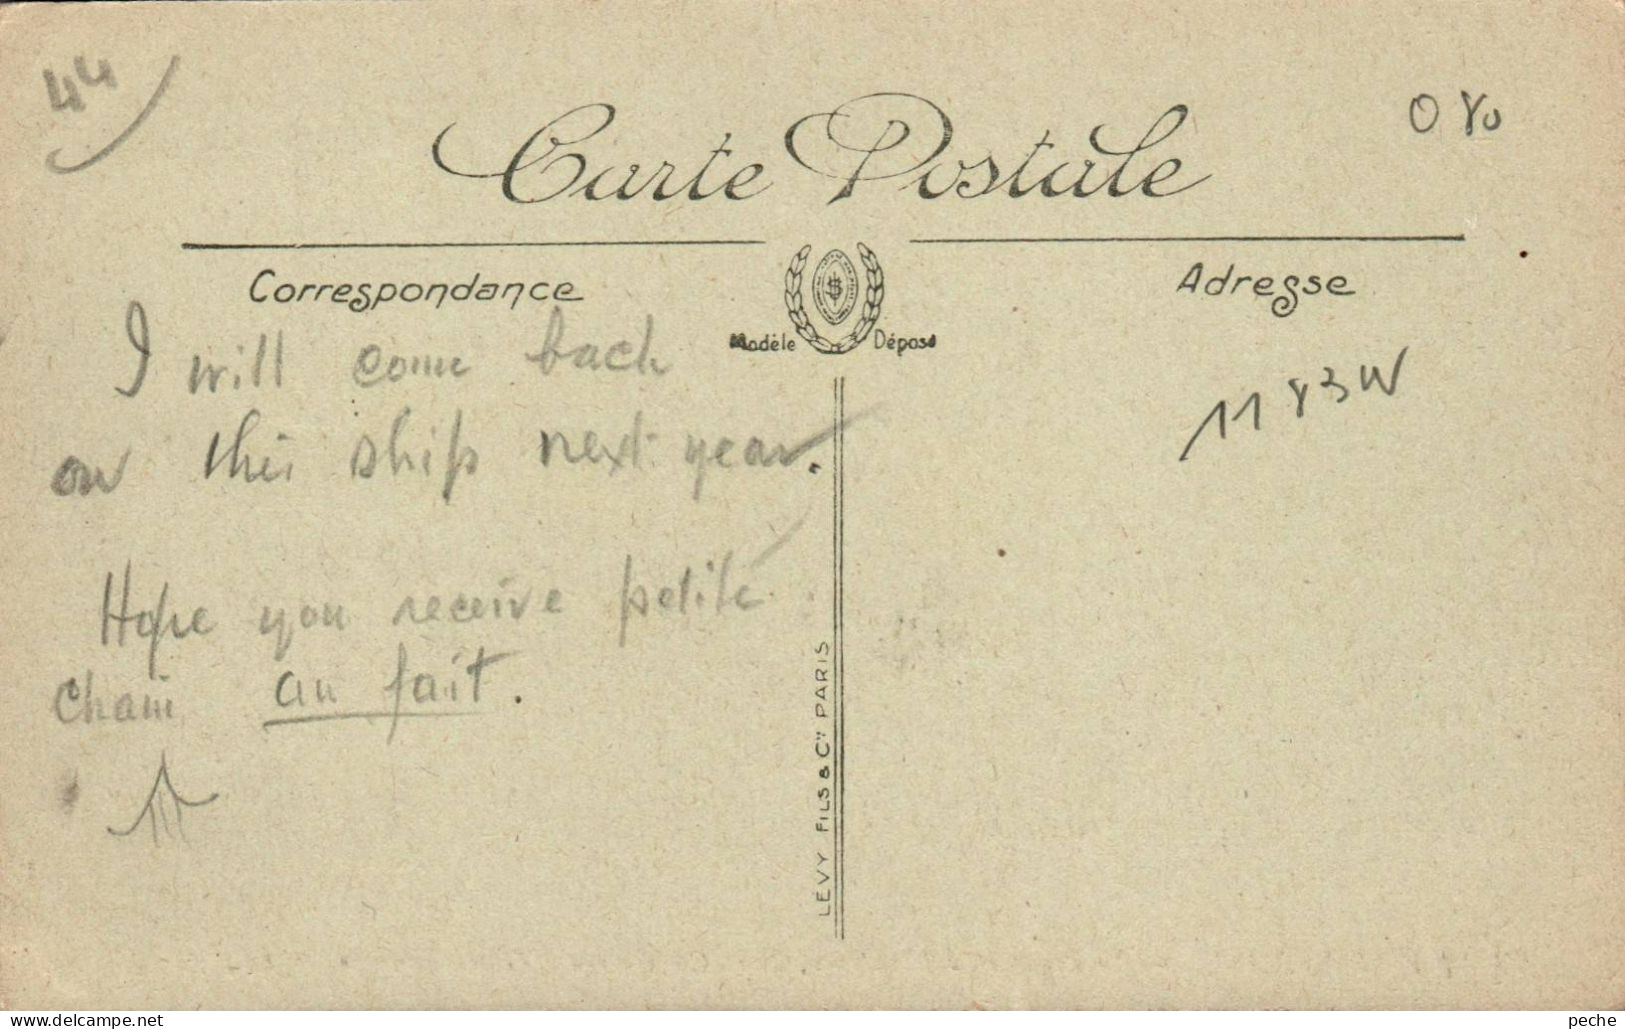 44
Carte Postale
Correspondance
Adresse
Modèle Déposé
I will come back
on this ship next year.
Hope you receive petite
chaui au fait.
LEVY FILS & Cie PARIS
www.delcampe.net
peche